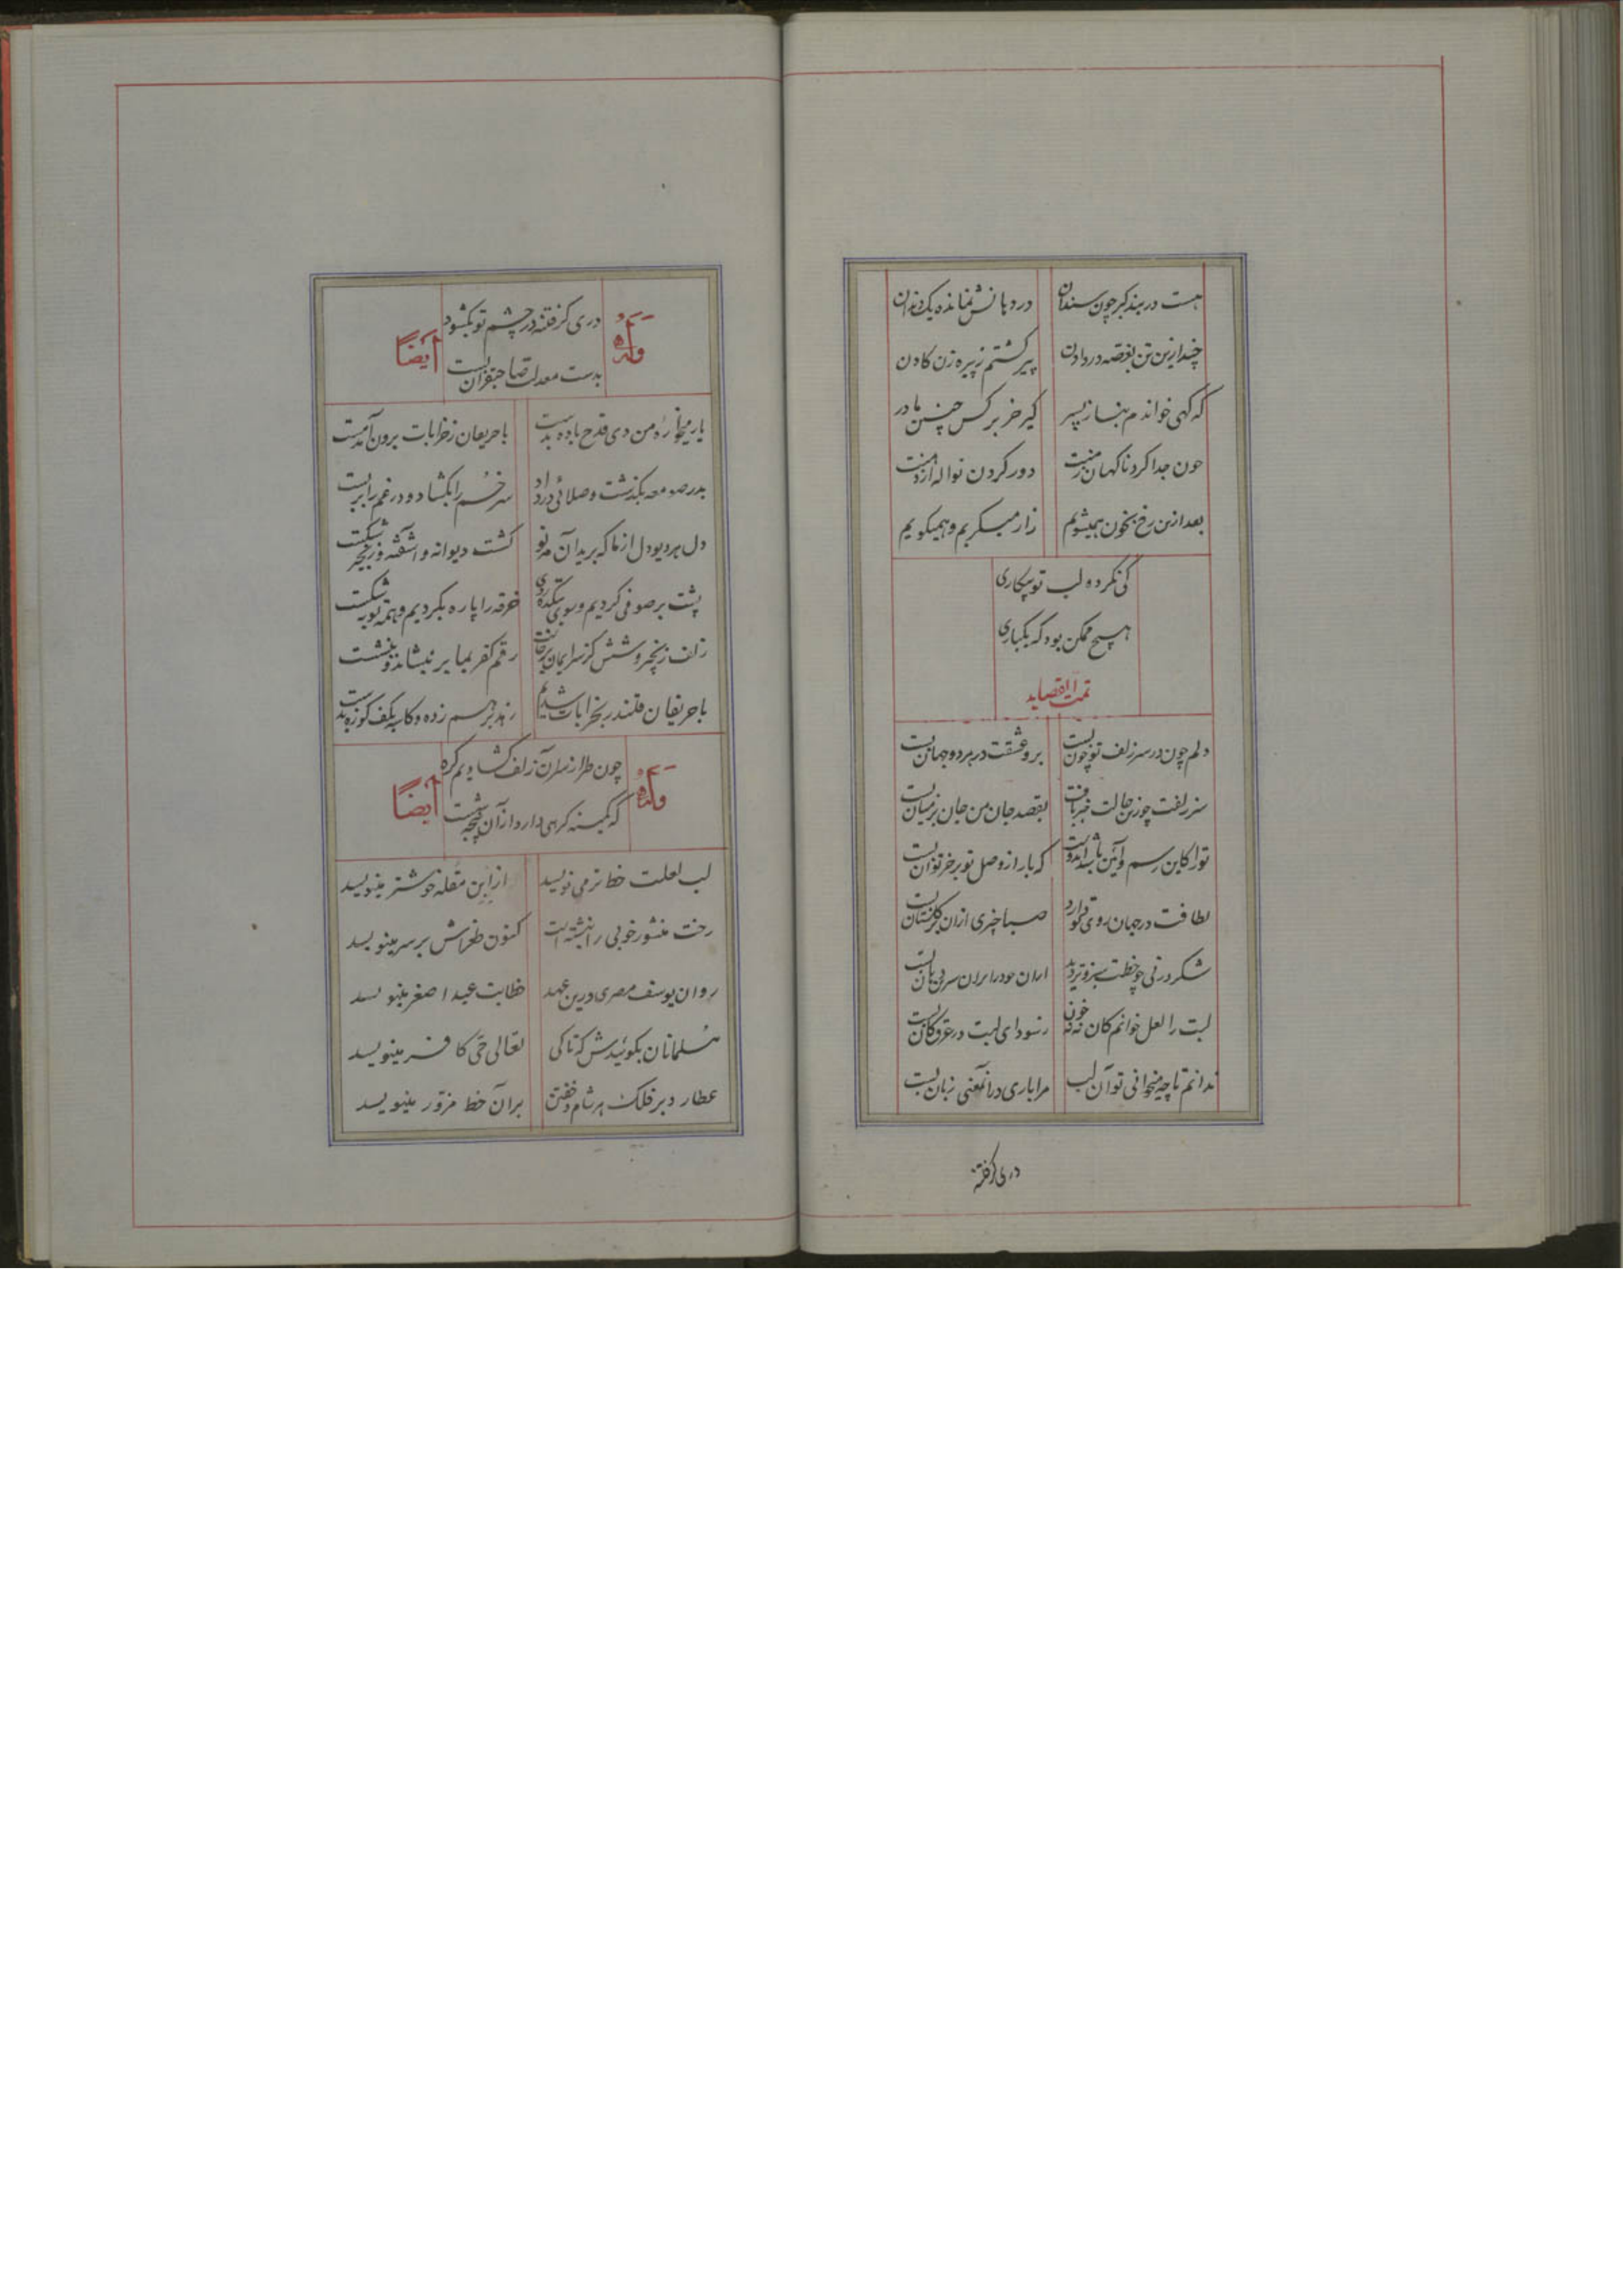 هست در بند کبر چون سندان در دهانش نمانده یک دندان
چند ازین تن بغصه در دادن پیر گشتم ز پیره زن گادن
که گهی خواندم بناز پسر کیر خر بر کس چنین مادر
چون جدا کرد ناگهان زمنت دور کردن نواله از دهنت
بعد ازین رخ بخون همیشویم زار میگریم و همیگویم
کی نکرده لب تو پیکاری
هیچ ممکن بود که یکباری
تمت القصاید
دلم چون در سر زلف تو چون بست برو عشقت در هر دو جهان بست
سر زلفت چو زین حالت خبر یافت بقصد جان من جان بر میان بست
ترا کاین رسم و آئین باشد ایدوست که یارد از وصل تو برخورد توان بست
لطافت در جهان روی تو دارد صبا چیزی ازان بر گلستان بست
شکر در نی چو خطت سبزتر دید
لبت را لعل خوانم کان نه خون ز سودای لبت در عرق کان بست
ندانم تا چه میخوانی تو آن لب مرا باری در آنمعنی زبان بست
دری گرفته
دری کز فتنه در چشم تو بگشود
وله ایضاً
بدست معدلت صاحبقران بست
یار میخواره من دی قدح باده بدست با حریفان ز خرابات برون آمد مست
بدر صومعه بگذشت و صلائی در داد سر خم را بگشاد و در غم را بربست
دل هر دیو دل از ما که بدید آن مه نو گشت دیوانه و آشفته و زنجیر شکست
پشت بر صوفی کردیم و سوی بتکده روی خرقه را پاره بکردیم و همه توبه شکست
زلف زنجیروشش کز سر ایمان برخاست رقم کفر بما بر بنشاند و بنشست
با حریفان قلندر بخرابات شدیم زهد بر هم زده و کاسه بکف کوزه بدست
چون طرار از سر آن زلف گشادیم گره
وله ایضاً
که کمینه گرهی دارد از آن پنجه شست
لب لعلت خط تر می نویسد ازاین مقله خوشتر مینویسد
رخت منشور خوبی را نبشته است کنون طغراش بر سر مینویسد
روان یوسف مصری درین عهد خطابت عبد اصغر مینویسد
مسلمانان بگوئیدش که تا کی تعالی حی کافر مینویسد
عطارد بر فلک هر شام و خفتن بران خط مزوّر مینویسد